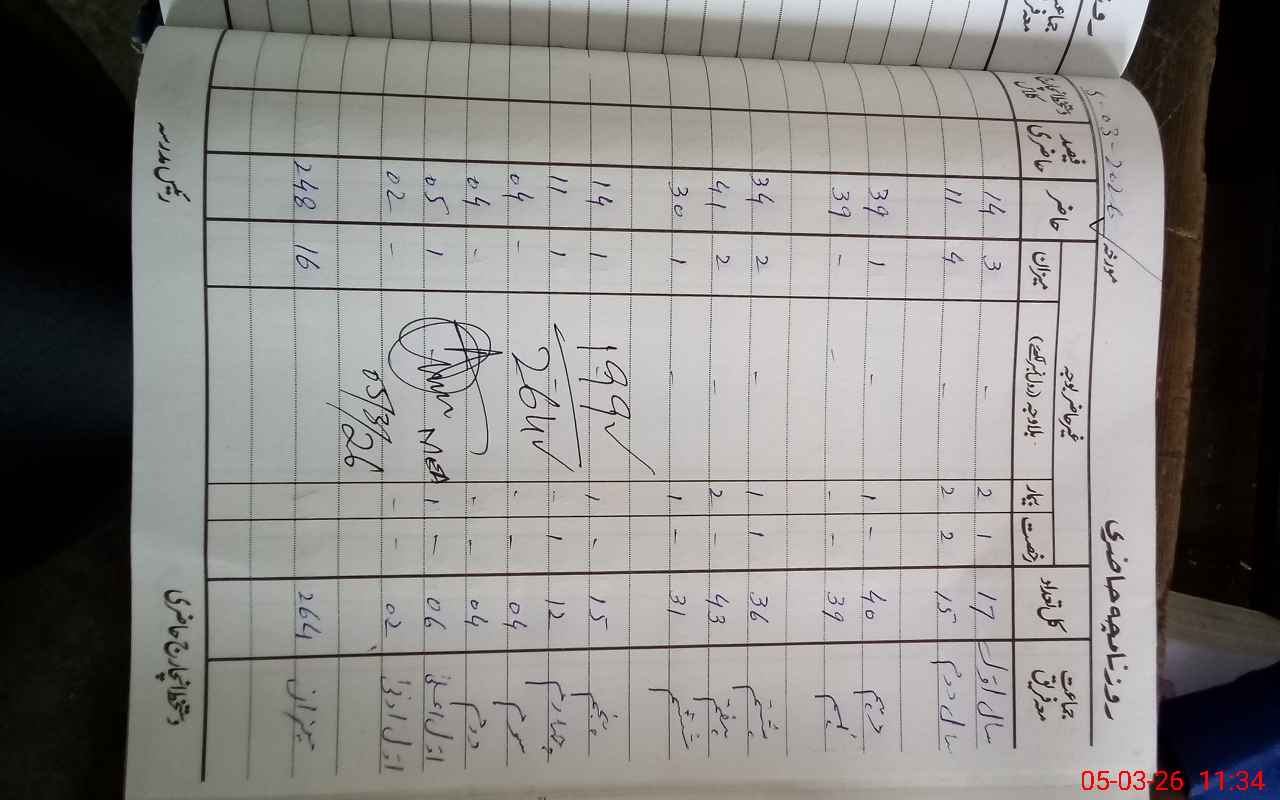 روزنامچہ حاضری
مورخہ 5-03-2026
جماعت معہ فریق | کل تعداد | غیر حاضر بوجہ | حاضر | فیصد حاضری
رخصت | بیمار | بلاوجہ (رول نمبر لکھیے) | میزان
سال اول 17 1 2 - 3 14
سال دوم 15 2 2 - 4 11
دہم 40 - 1 - 1 39
نہم 39 - - - - 39
ہشتم 36 1 1 - 2 34
ہفتم 43 - 2 - 2 41
ششم 31 - 1 - 1 30
پنجم 15 - 1 - 1 14
چہارم 12 1 - - 1 11
سوم 04 - - - 04
دوم 04 - - - 04
اول اعلیٰ 06 - 1 1 05
اول ادنیٰ 02 - - - 02
میزان 264 16 248
199
264
MEA
05/3/26
دستخط انچارج حاضری
رئیس مدرسہ
05-03-26 11:34